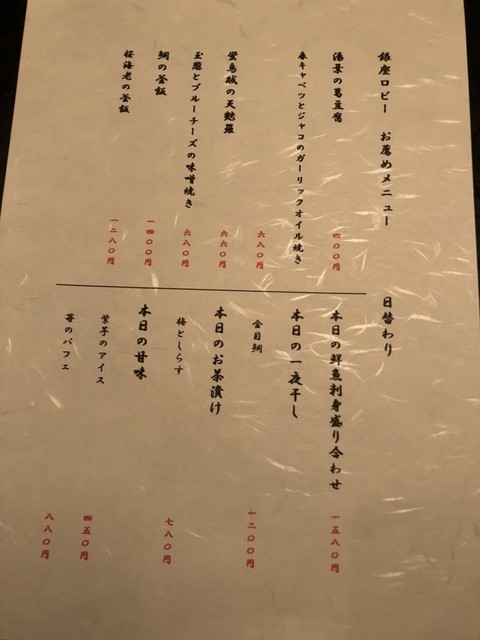 銀座ロビー お薦めメニュー
湯葉の葛豆腐 四〇〇円
春キャベツとジャコのガーリックオイル焼き 六八〇円
蛍烏賊の天麩羅 六六〇円
玉葱とブルーチーズの味噌焼き 六八〇円
鯛の釜飯 一四〇〇円
桜海老の釜飯 一二八〇円
日替わり
本日の鮮魚刺身盛り合わせ 一五八〇円
本日の一夜干し
金目鯛 一二〇〇円
本日のお茶漬け
梅としらす 七八〇円
本日の甘味
紫芋のアイス 四五〇円
苺のパフェ 八八〇円